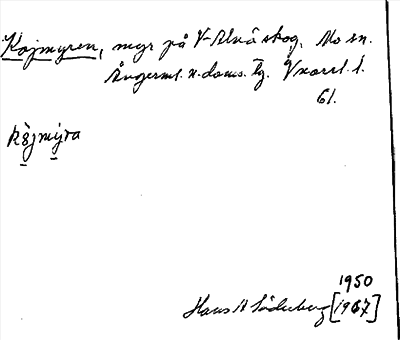 Kojmyren, myr på V-Alnö skog. Mo sn.
Ångerml. n. doms. tg. Vnorrl. l.
61.
köjmyra
1950
Hans A Söderberg [1967]